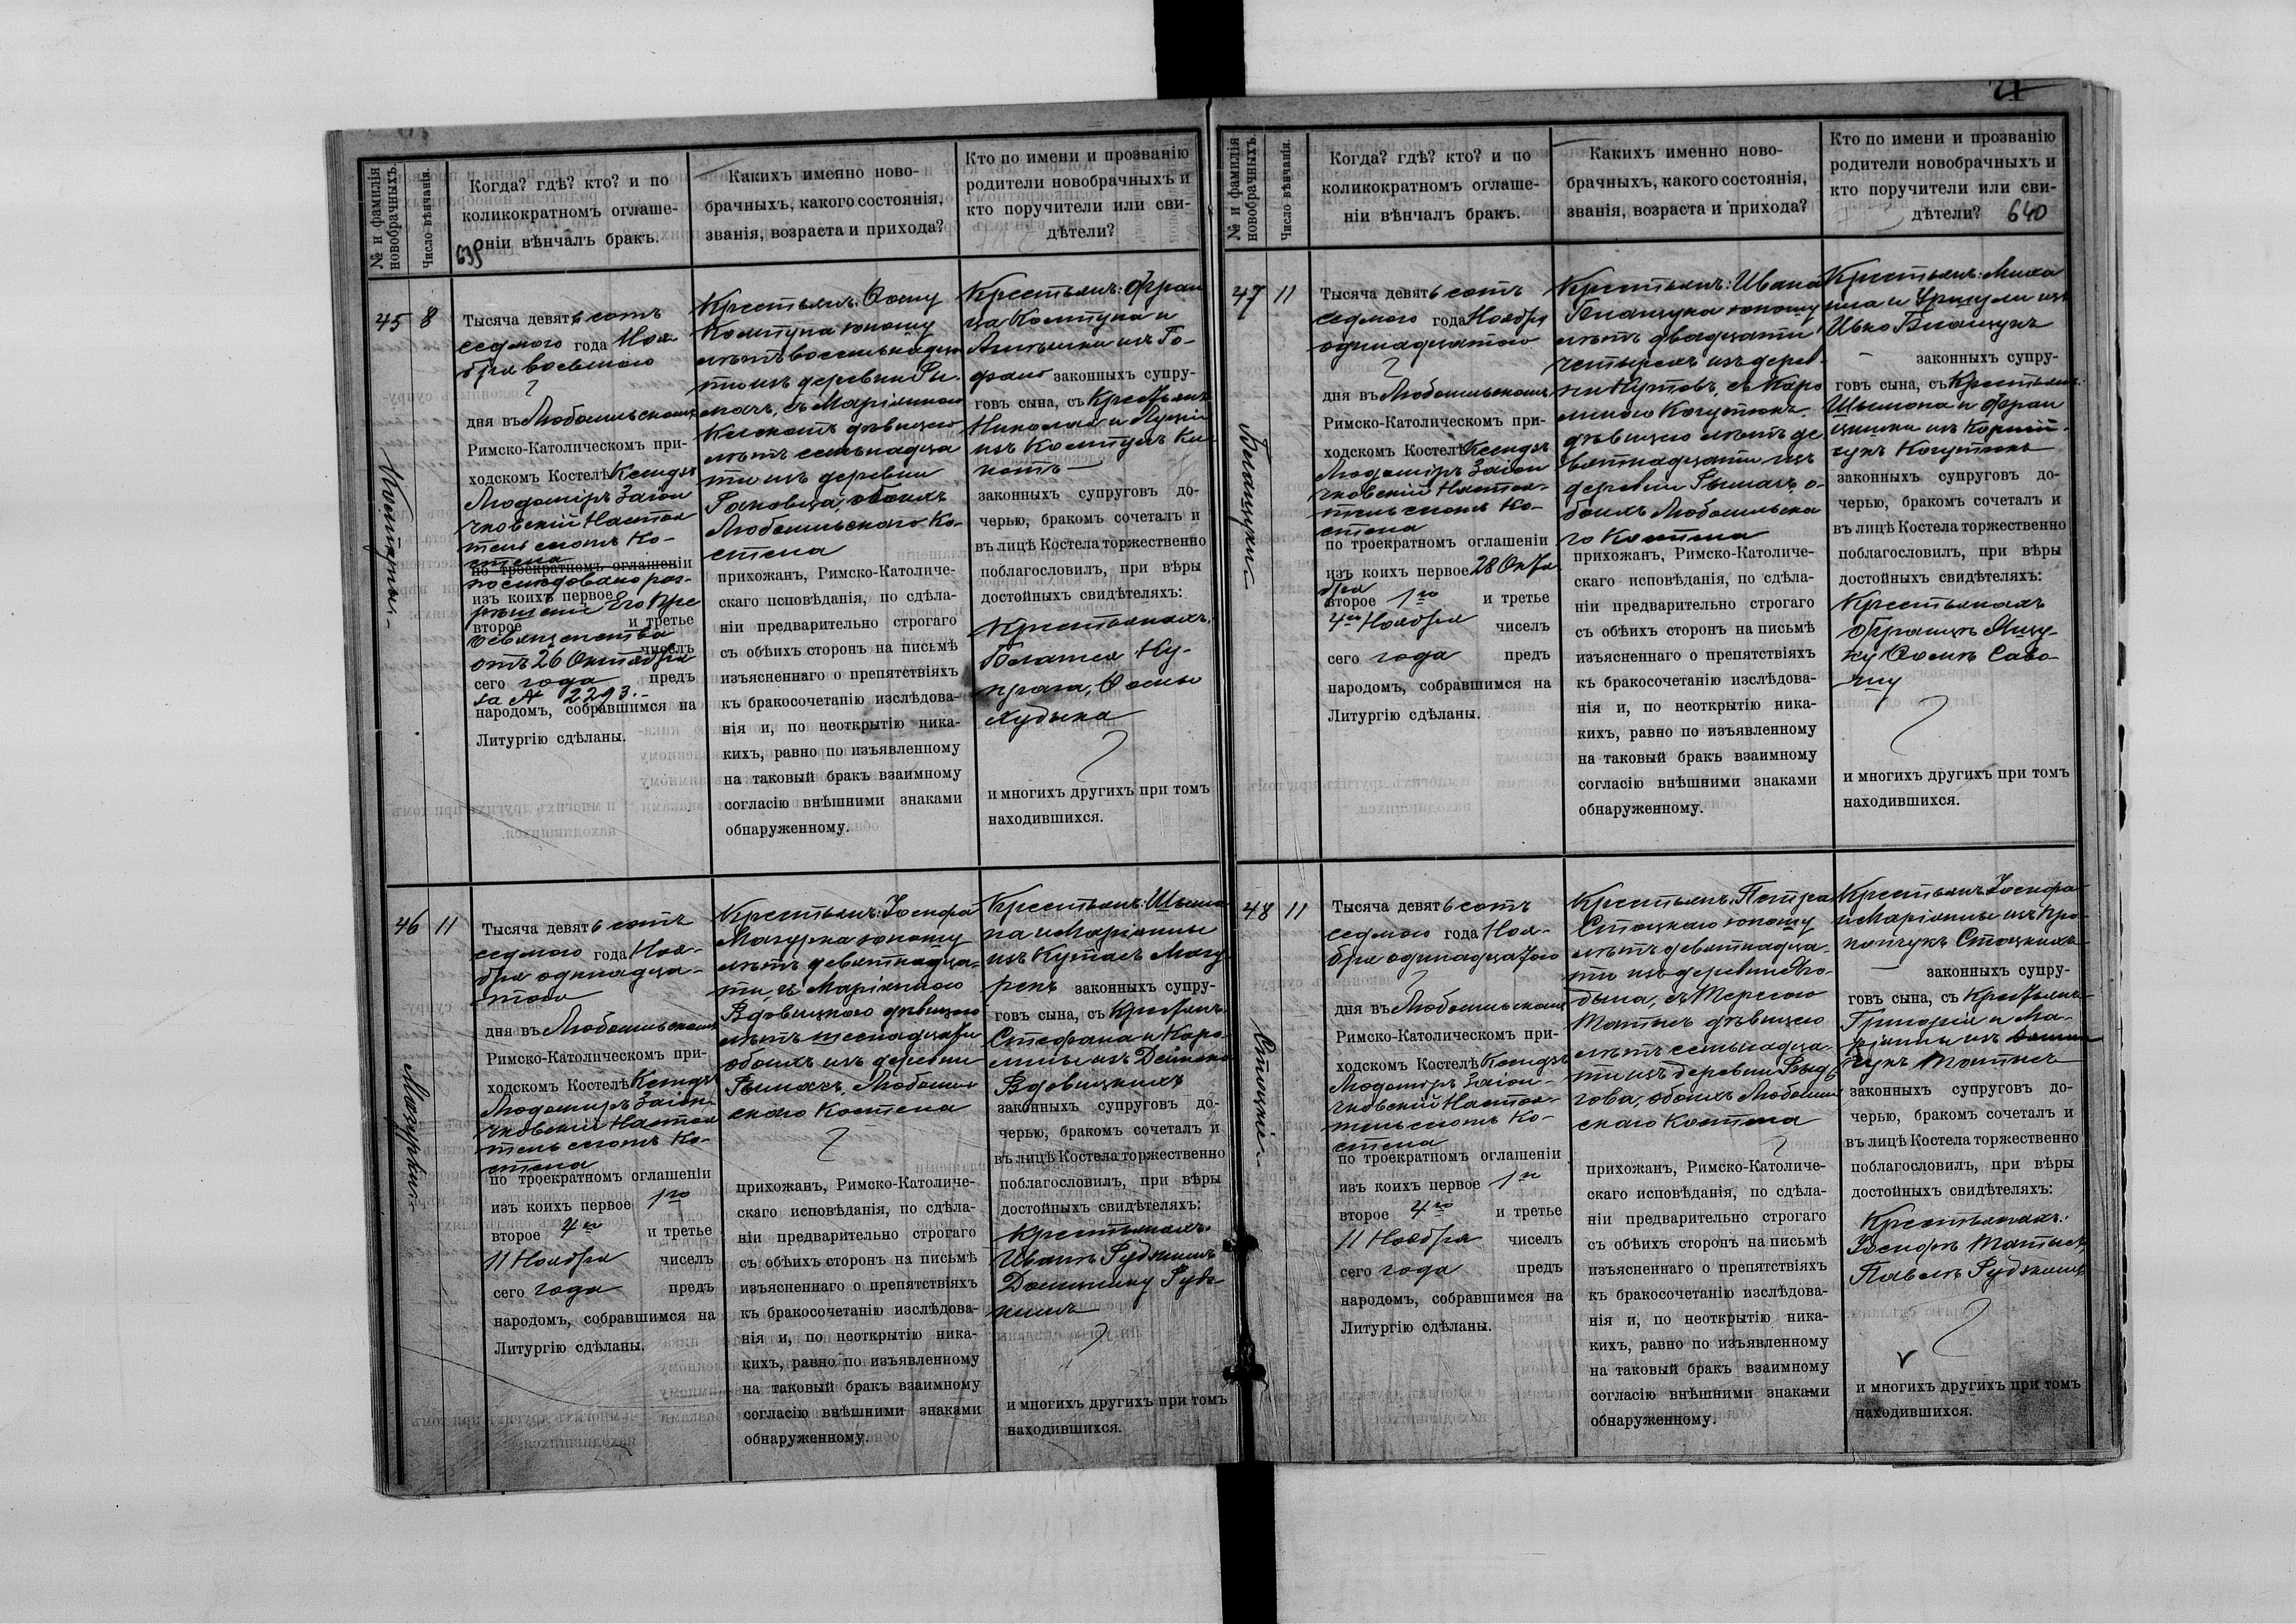 № и фамилія
новобрачныхъ.
Число вѣнчанія.
Когда? гдѣ? кто? и по
коликократномъ оглаше-
ніи вѣнчалъ бракъ.
639
Какихъ именно ново-
брачныхъ, какого состоянія,
званія, возраста и прихода?
Кто по имени и прозванію
родители новобрачныхъ и
кто поручители или сви-
дѣтели?
45
8
Тысяча девятьсотъ
седмого года Ноя-
бря восьмого
дня въ Любомльскомъ
Римско-Католическомъ при-
ходскомъ Костелѣ Ксендзъ
Людомиръ Заіон
чковскій Настоя
тель сиотъ Ко-
стела
по троекратномъ оглашеніи
послѣдовано раз-
изъ коихъ первое
рѣшеніи Его Пре
второе и третье
освященства
чиселъ
отъ 26 Октября
сего года предъ
за № 2293.-
народомъ, собравшимся на
Литургію сдѣланы.
Крестьянъ: Ѳому
юношу
лѣтъ восемьнадца
ти изъ деревни Ры-
мачъ, съ Маріянною
дѣвицею
лѣтъ семьнадца
ти изъ деревни
обоихъ
Любомльскаго Ко-
стела
прихожанъ, Римско-Католиче-
скаго исповѣданія, по сдѣла-
ніи предварительно строгаго
съ обѣихъ сторонъ на письмѣ
изъясненнаго о препятствіяхъ
къ бракосочетанію изслѣдова-
нія и, по неоткрытію ника-
кихъ, равно по изъявленному
на таковый бракъ взаимному
согласію внѣшними знаками
обнаруженному.
Крестьянъ: Фран
ца и
изъ Го-
законныхъ супру-
говъ сына, съ Крестьянъ
Николая и Луціи
изъ
законныхъ супруговъ до-
черью, бракомъ сочеталъ и
въ лицѣ Костела торжественно
поблагословилъ, при вѣры
достойныхъ свидѣтеляхъ:
Крестьянахъ:
и многихъ другихъ при томъ
находившихся.
46
11
Мазурки
Тысяча девятьсотъ
седмого года Ноя-
бря одинадца-
того
дня въ Любомльскомъ
Римско-Католическомъ при-
ходскомъ Костелѣ Ксендзъ
Людомиръ Заіон-
чковскій Настоя
тель сиотъ Ко-
стела
по троекратномъ оглашеніи
изъ коихъ первое 1го
второе 4го и третье
11 Ноября чиселъ
сего года предъ
народомъ, собравшимся на
Литургію сдѣланы.
Крестьянъ: Іосифа
Мазурка юношу
лѣтъ девятнадца-
ти, съ Маріянною
Вдовицкою дѣвицею
лѣтъ шеснадцати
обоихъ изъ деревни
Рымачъ, Любомль
скаго Костела
прихожанъ, Римско-Католиче-
скаго исповѣданія, по сдѣла-
ніи предварительно строгаго
съ обѣихъ сторонъ на письмѣ
изъясненнаго о препятствіяхъ
къ бракосочетанію изслѣдова-
нія и, по неоткрытію ника-
кихъ, равно по изъявленному
на таковый бракъ взаимному
согласію внѣшними знаками
обнаруженному.
Крестьянъ: Шимо
на и Маріянны
изъ Мазу
рекъ законныхъ супру-
говъ сына, съ Крестьянъ
Стефана и Каро-
лины изъ
Вдовицкихъ
законныхъ супруговъ до-
черью, бракомъ сочеталъ и
въ лицѣ Костела торжественно
поблагословилъ, при вѣры
достойныхъ свидѣтеляхъ:
Крестьянахъ:
Иванъ
и многихъ другихъ при томъ
находившихся.
№ и фамилія
новобрачныхъ.
Число вѣнчанія.
Когда? гдѣ? кто? и по
коликократномъ оглаше-
ніи вѣнчалъ бракъ.
Какихъ именно ново-
брачныхъ, какого состоянія,
званія, возраста и прихода?
Кто по имени и прозванію
родители новобрачныхъ и
кто поручители или сви-
дѣтели? 640
47
11
Тысяча девятьсотъ
седмого года Ноября
одинадцатого
дня въ Любомльскомъ
Римско-Католическомъ при-
ходскомъ Костелѣ Ксендзъ
Людомиръ Заіон
чковскій Настоя-
тель сиотъ Ко-
стела
по троекратномъ оглашеніи
изъ коихъ первое 28 Октя
бря
второе 1го и третье
4го Ноября чиселъ
сего года предъ
народомъ, собравшимся на
Литургію сдѣланы.
Крестьянъ: Ивана
юношу
лѣтъ двадцати
четырехъ изъ дерев-
ни Кутовъ, съ Каро
линою
дѣвицею лѣтъ де-
вятнадцати изъ
деревни Рымачъ, о-
боихъ Любомльска
го Костела
прихожанъ, Римско-Католиче-
скаго исповѣданія, по сдѣла-
ніи предварительно строгаго
съ обѣихъ сторонъ на письмѣ
изъясненнаго о препятствіяхъ
къ бракосочетанію изслѣдова-
нія и, по неоткрытію ника-
кихъ, равно по изъявленному
на таковый бракъ взаимному
согласію внѣшними знаками
обнаруженному.
Крестьянъ: Миха
ила и Уршули изъ
законныхъ супру-
говъ сына, съ Крестьянъ:
Шымона и Фран
цишки изъ
законныхъ супруговъ до-
черью, бракомъ сочеталъ и
въ лицѣ Костела торжественно
поблагословилъ, при вѣры
достойныхъ свидѣтеляхъ:
Крестьянахъ
и многихъ другихъ при томъ
находившихся.
48
11
Стоцкіе
Тысяча девятьсотъ
седмого года Ноя-
бря одинадцатого
дня въ Любомльскомъ
Римско-Католическомъ при-
ходскомъ Костелѣ Ксендзъ
Людомиръ Заіон-
чковскій Настоя-
тель сиотъ Ко-
стела
по троекратномъ оглашеніи
изъ коихъ первое 1го
второе 4го и третье
11 Ноября чиселъ
сего года предъ
народомъ, собравшимся на
Литургію сдѣланы.
Крестьянъ: Петра
Стоцкаго юношу
лѣтъ девятнадца-
ти изъ деревни
съ Тересою
дѣвицею
лѣтъ семьнадца-
ти изъ деревни
обоихъ Любомль
скаго Костела
прихожанъ, Римско-Католиче-
скаго исповѣданія, по сдѣла-
ніи предварительно строгаго
съ обѣихъ сторонъ на письмѣ
изъясненнаго о препятствіяхъ
къ бракосочетанію изслѣдова-
нія и, по неоткрытію ника-
кихъ, равно по изъявленному
на таковый бракъ взаимному
согласію внѣшними знаками
обнаруженному.
Крестьянъ Іосифа
и Маріянны изъ Про-
Стоцкихъ
законныхъ супру-
говъ сына, съ Крестьянъ
Григорія и Ма-
ріянны изъ
законныхъ супруговъ до-
черью, бракомъ сочеталъ и
въ лицѣ Костела торжественно
поблагословилъ, при вѣры
достойныхъ свидѣтеляхъ:
Крестьянахъ:
Іосифъ
Павелъ
и многихъ другихъ при томъ
находившихся.